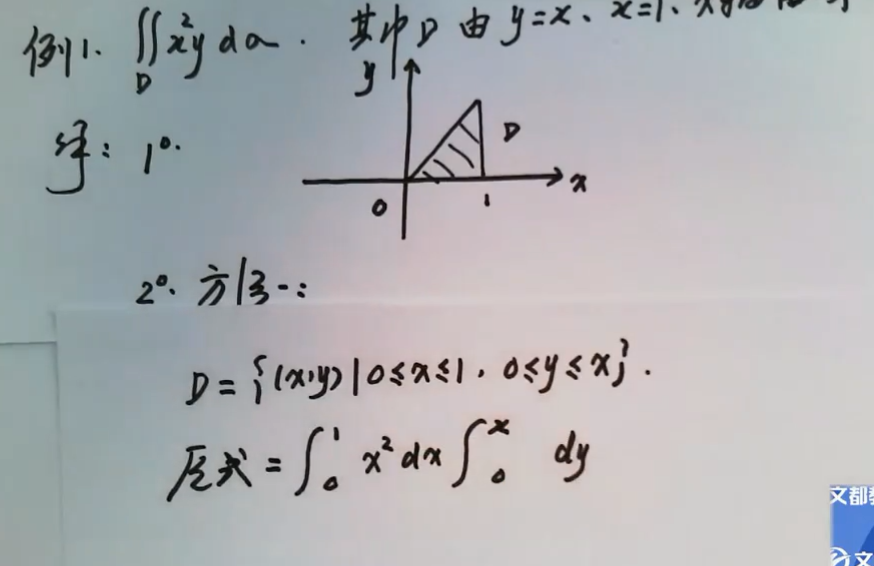 例1. ∬_D x²y dσ. 其中 D 由 y=x、x=1、x
y
D
解: 1°.
0 1 x
2°. 方法一:
D = {(x,y) | 0≤x≤1, 0≤y≤x}.
原式 = ∫₀¹ x² dx ∫₀ˣ dy
文都
文